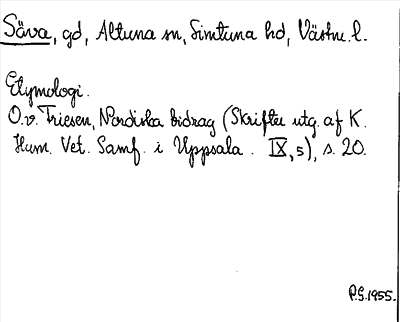 Säva, gd, Altuna sn, Simtuna hd, Västm. l.
Etymologi.
O. v. Friesen, Nordiska bidrag (Skrifter utg. af K.
Hum. Vet. Samf. i Uppsala. IX, 5), s. 20.
P.G. 1955.